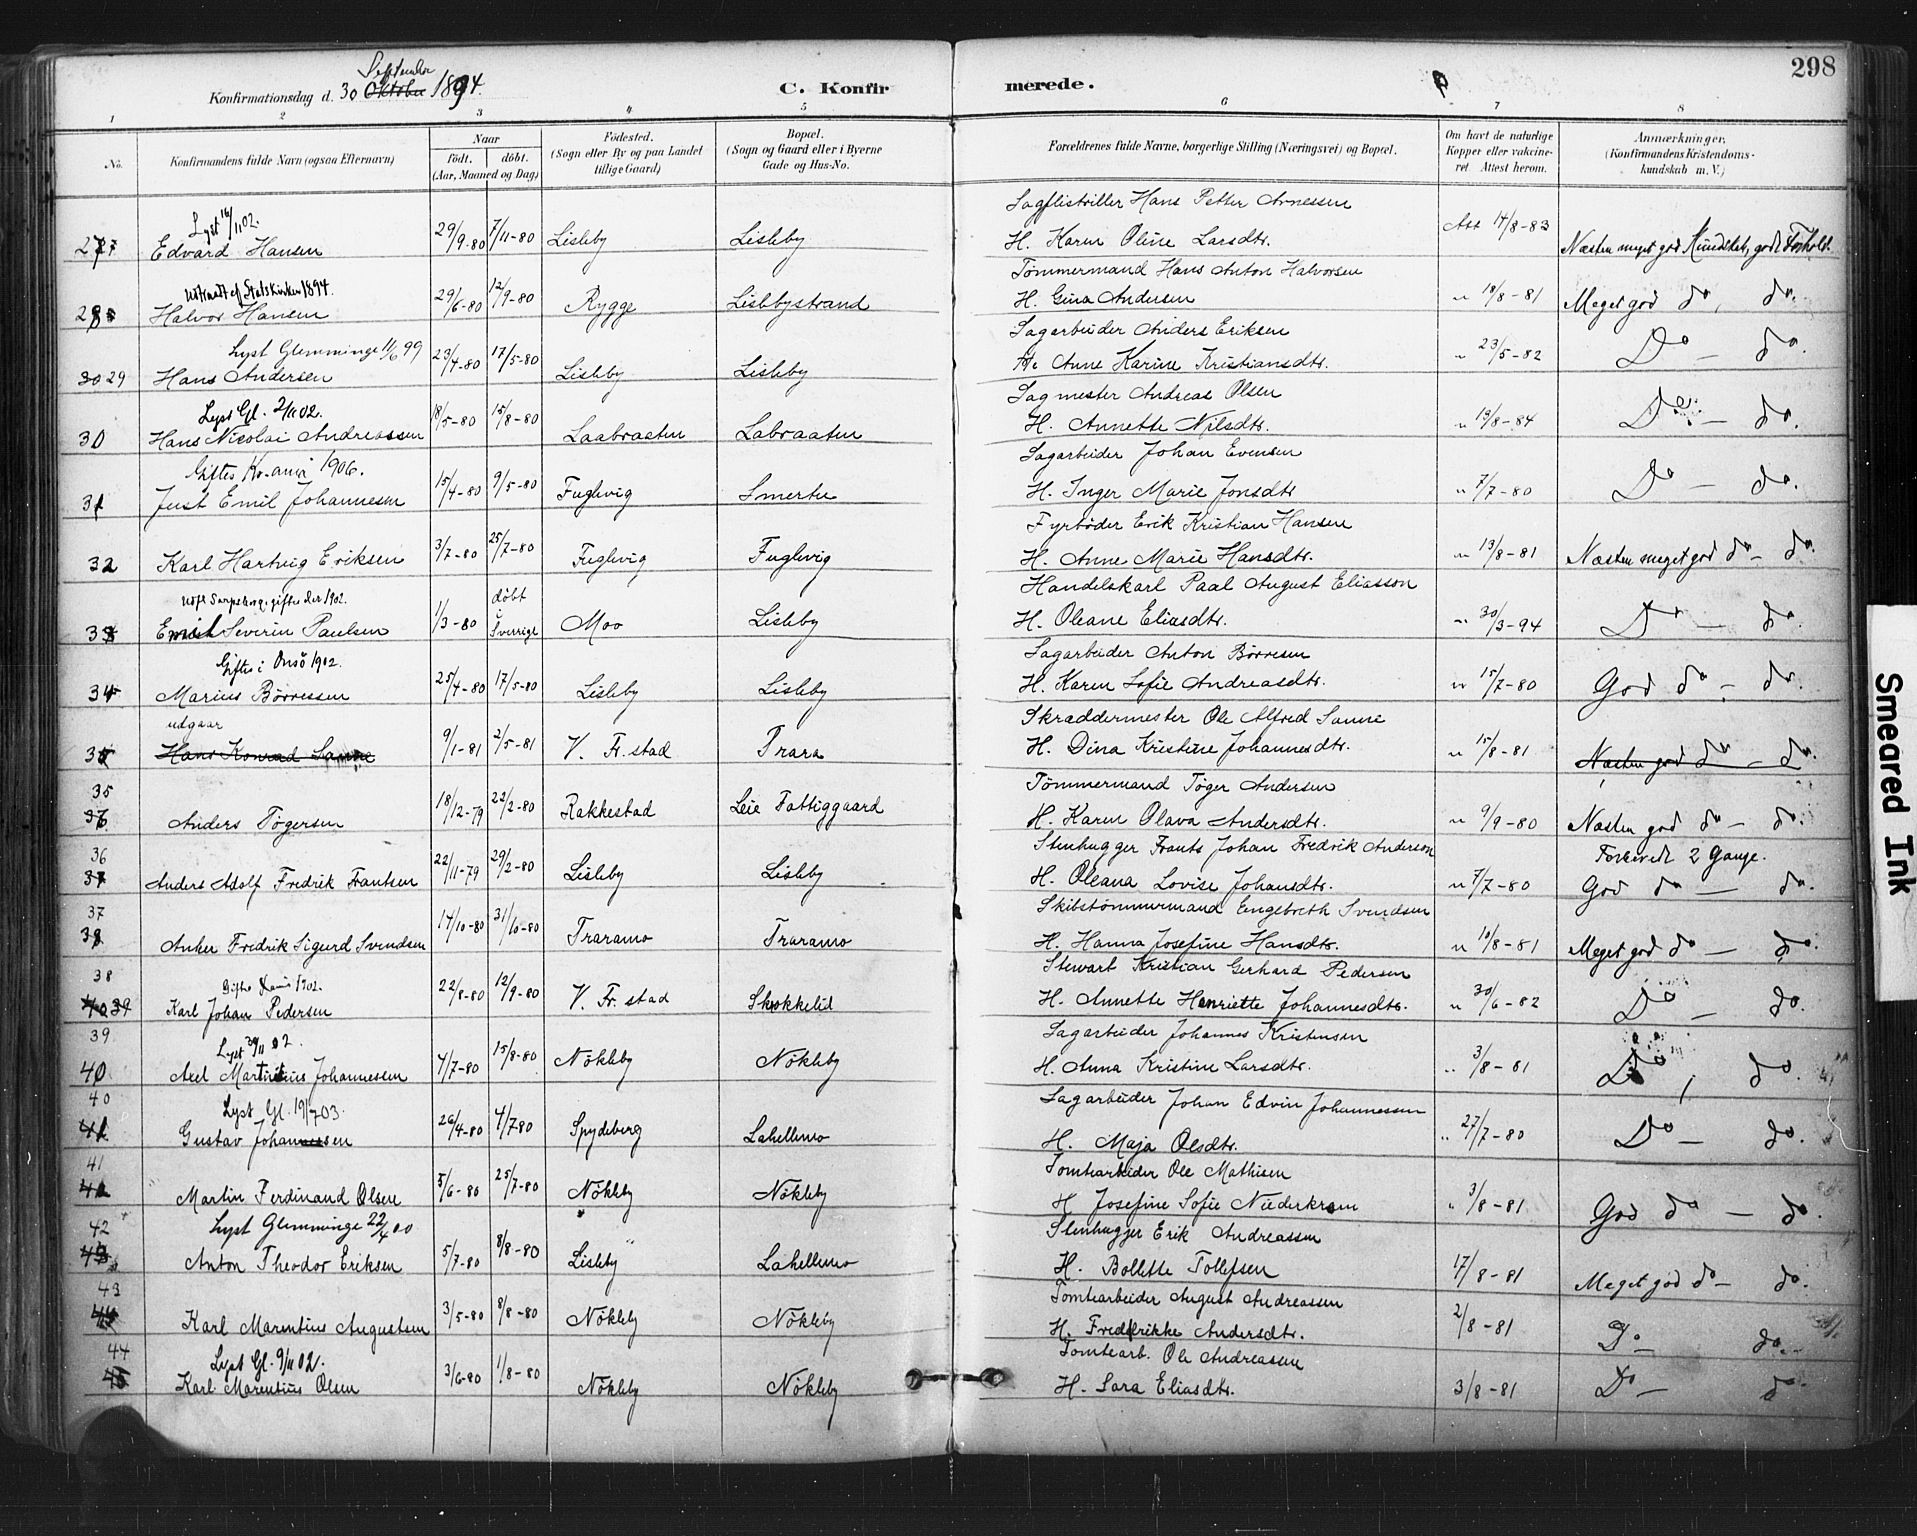 298
September
Konfirmationsdag d. 30 Oktober 1894.
C. Konfirmerede.
1 2 3 4 5 6 7 8
No.
Konfirmandens fulde Navn (ogsaa Efternavn)
Naar
födt. döbt.
(Aar, Maaned og Dag)
Födested.
(Sogn eller By og paa Landet tillige Gaard)
Bopæl.
(Sogn og Gaard eller i Byerne Gade og Hus-No.
Forældrenes fulde Navne, borgerlige Stilling (Næringsvei) og Bopæl.
Om havt de naturlige Kopper eller vakcineret Attest herom.
Anmærkninger,
(Konfirmandens Kristendomskundskab m. V.)
Lyst 16/11 02.
Sagflistriller Hans Petter Arnessen
27 Edvard Hansen 29/9-80 7/11-80 Lisleby Lisleby H. Karen Oline Larsdtr. Att 14/8-83 Næsten meget god Kundskab, godt Forhold.
Udtraadt af Statskirken 1894.
Tømmermand Hans Anton Halvorsen
28 Halvor Hansen 29/6-80 12/9-80 Rygge Lislebystrand H. Gina Andersen " 18/8-81 Meget god do, do.
Lyst Glemminge 11/6 99
Sagarbeider Anders Eriksen
29 Hans Andersen 23/4-80 17/5-80 Lisleby Lisleby H. Anne Karine Kristiansdtr. " 23/5-82 Do — do.
Lyst Gl. 2/11 02.
Sagmester Andreas Olsen
30 Hans Nicolai Andreassen 18/5-80 15/8-80 Laabraaten Labraaten H. Annette Nilsdtr. " 13/8-84 Do — do.
Giftes Kr.ania 1906.
Sagarbeider Johan Evensen
31 Just Emil Johannesen 15/4-80 9/5-80 Fuglevig Smertu H. Inger Marie Jonsdtr " 7/7-80 Do — do.
Fyrbøder Erik Kristian Hansen
32 Karl Hartvig Eriksen 3/7-80 25/7-80 Fuglevig Fuglevig H. Anne Marie Hansdtr. " 13/8-81 Næsten meget god do — do.
Udfl Sarpsborg, giftes der 1902.
Handelskarl Paal August Eliasson
33 Emil Severin Paulsen 1/3-80 døbt i Sverrige Moo Lisleby H. Oleane Eliasdtr. " 30/3-94 Do — do.
Giftes i Onsö 1902.
Sagarbeider Anton Børresen
34 Marius Børresen 25/4-80 17/5-80 Lisleby Lisleby H. Karen Sofie Andreasdtr. " 15/7-80 God do — do.
udgaar
Skræddermester Ole Alfred Sanne
35 Hans Konrad Sanne 9/1-81 2/5-81 V. Fr.stad Trara H. Dina Kristine Johannesdtr. " 15/8-81 Næsten god do — do.
Tømmermand Tøger Andersen
35 36 Anders Tøgersen 18/12-79 22/2-80 Rakkestad Leie Fattiggaard H. Karen Olava Andersdtr. " 9/9-80 Næsten god do — do.
Stenhugger Frants Johan Fredrik Anderson
2 Gange.
36 37 Anders Adolf Fredrik Frantsen 22/11-79 29/2-80 Lisleby Lisleby H. Oleana Lovise Johansdtr. " 7/7-80 God do — do.
Skibstømmermand Engebreth Svendsen
37 38 Anker Fredrik Sigurd Svendsen 14/10-80 31/10-80 Traramo Traramo H. Hanna Josefine Hansdtr. " 10/8-81 Meget god do — do.
Stewart Kristian Gerhard Pedersen
38 40 39 Karl Johan Pedersen 22/8-80 12/9-80 V. Fr.stad Skokkelid H. Annette Henriette Johannesdtr. " 30/6-82 Do — do.
Lyst 30/11 02.
Sagarbeider Johannes Kristensen
39 40 Axel Martinius Johannessen 4/7-80 15/8-80 Nökleby Nökleby H. Anna Kristine Larsdtr. " 3/8-81 Do, do.
Lyst Gl. 19/7 03.
Sagarbeider Johan Edvin Johannessen
40 41 Gustav Johannesen 26/4-80 4/7 80 Spydeberg Lahellemo H. Maja Olsdtr. " 27/7-80 Do — do.
Tomtearbeider Ole Mathisen
41 42 Martin Ferdinand Olsen 5/6-80 25/7-80 Nökleby Nökleby H Josefine Sofie Niederkrom " 3/8-81 God do — do.
Lyst Glemminge 22/4 00
Stenhugger Erik Andreassen
42 43 Anton Theodor Eriksen 5/7-80 8/8-80 Lisleby Lahellemo H. Bollette Tollefsen 17/8-81 Meget god do — do.
Tomtearbeider August Andreassen
43 44 Karl Marentius Augustsen 3/5-80 8/8-80 Nökleby Nökleby H. Fredrikke Andersdtr. 2/8-81 Do do.
Lyst Gl. 9/11 02.
Tomtearb. Ole Andreasen
44 45 Karl Marentius Olsen 3/6-80 1/8-80 Nökleby Nökleby H. Sara Eliasdtr. 3/8-81 Do — do.
Smeared Ink